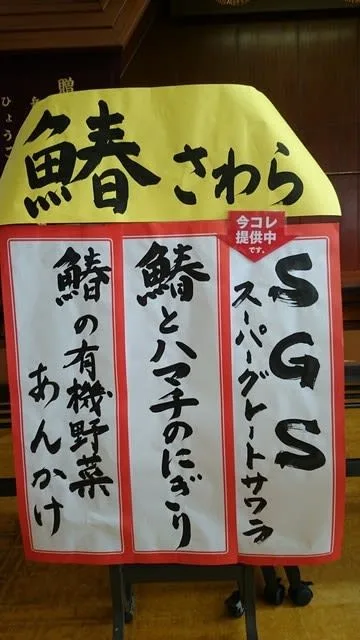 鰆 さわら
今コレ
提供中
です。
SGS
スーパーグレートサワラ
鰆とハマチのにぎり
鰆の有機野菜
あんかけ
贈
ひょうご